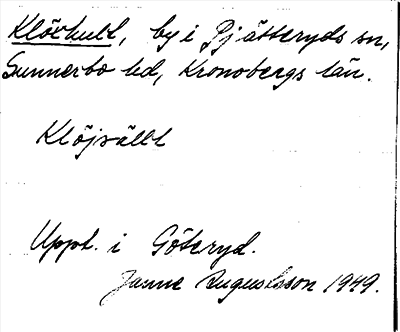 Klövhult, by i Pjätteryds sn,
Sunnerbo hd, Kronobergs län.
Klöjvällt
Uppt. i Göteryd.
Janne Augustsson 1949.